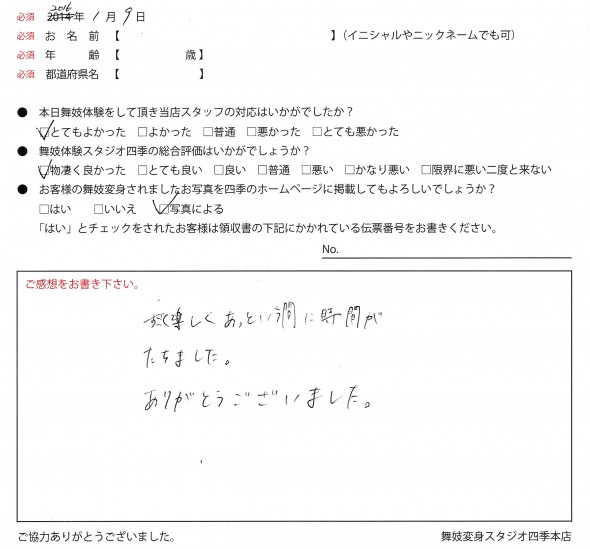 2016
必須 2014年 1月 9日
必須 お 名 前 【 】（イニシャルやニックネームでも可）
必須 年 齢 【 歳】
必須 都道府県名 【 】
● 本日舞妓体験をして頂き当店スタッフの対応はいかがでしたか？
☑とてもよかった □よかった □普通 □悪かった □とても悪かった
● 舞妓体験スタジオ四季の総合評価はいかがでしょうか？
☑物凄く良かった □とても良い □良い □普通 □悪い □かなり悪い □限界に悪い二度と来ない
● お客様の舞妓変身されましたお写真を四季のホームページに掲載してもよろしいでしょうか？
□はい □いいえ ☑写真による
「はい」とチェックをされたお客様は領収書の下記にかかれている伝票番号をお書きください。
No.
ご感想をお書き下さい。
楽しくあっという間に時間が
たちました。
ありがとうございました。
ご協力ありがとうございました。 舞妓変身スタジオ四季本店